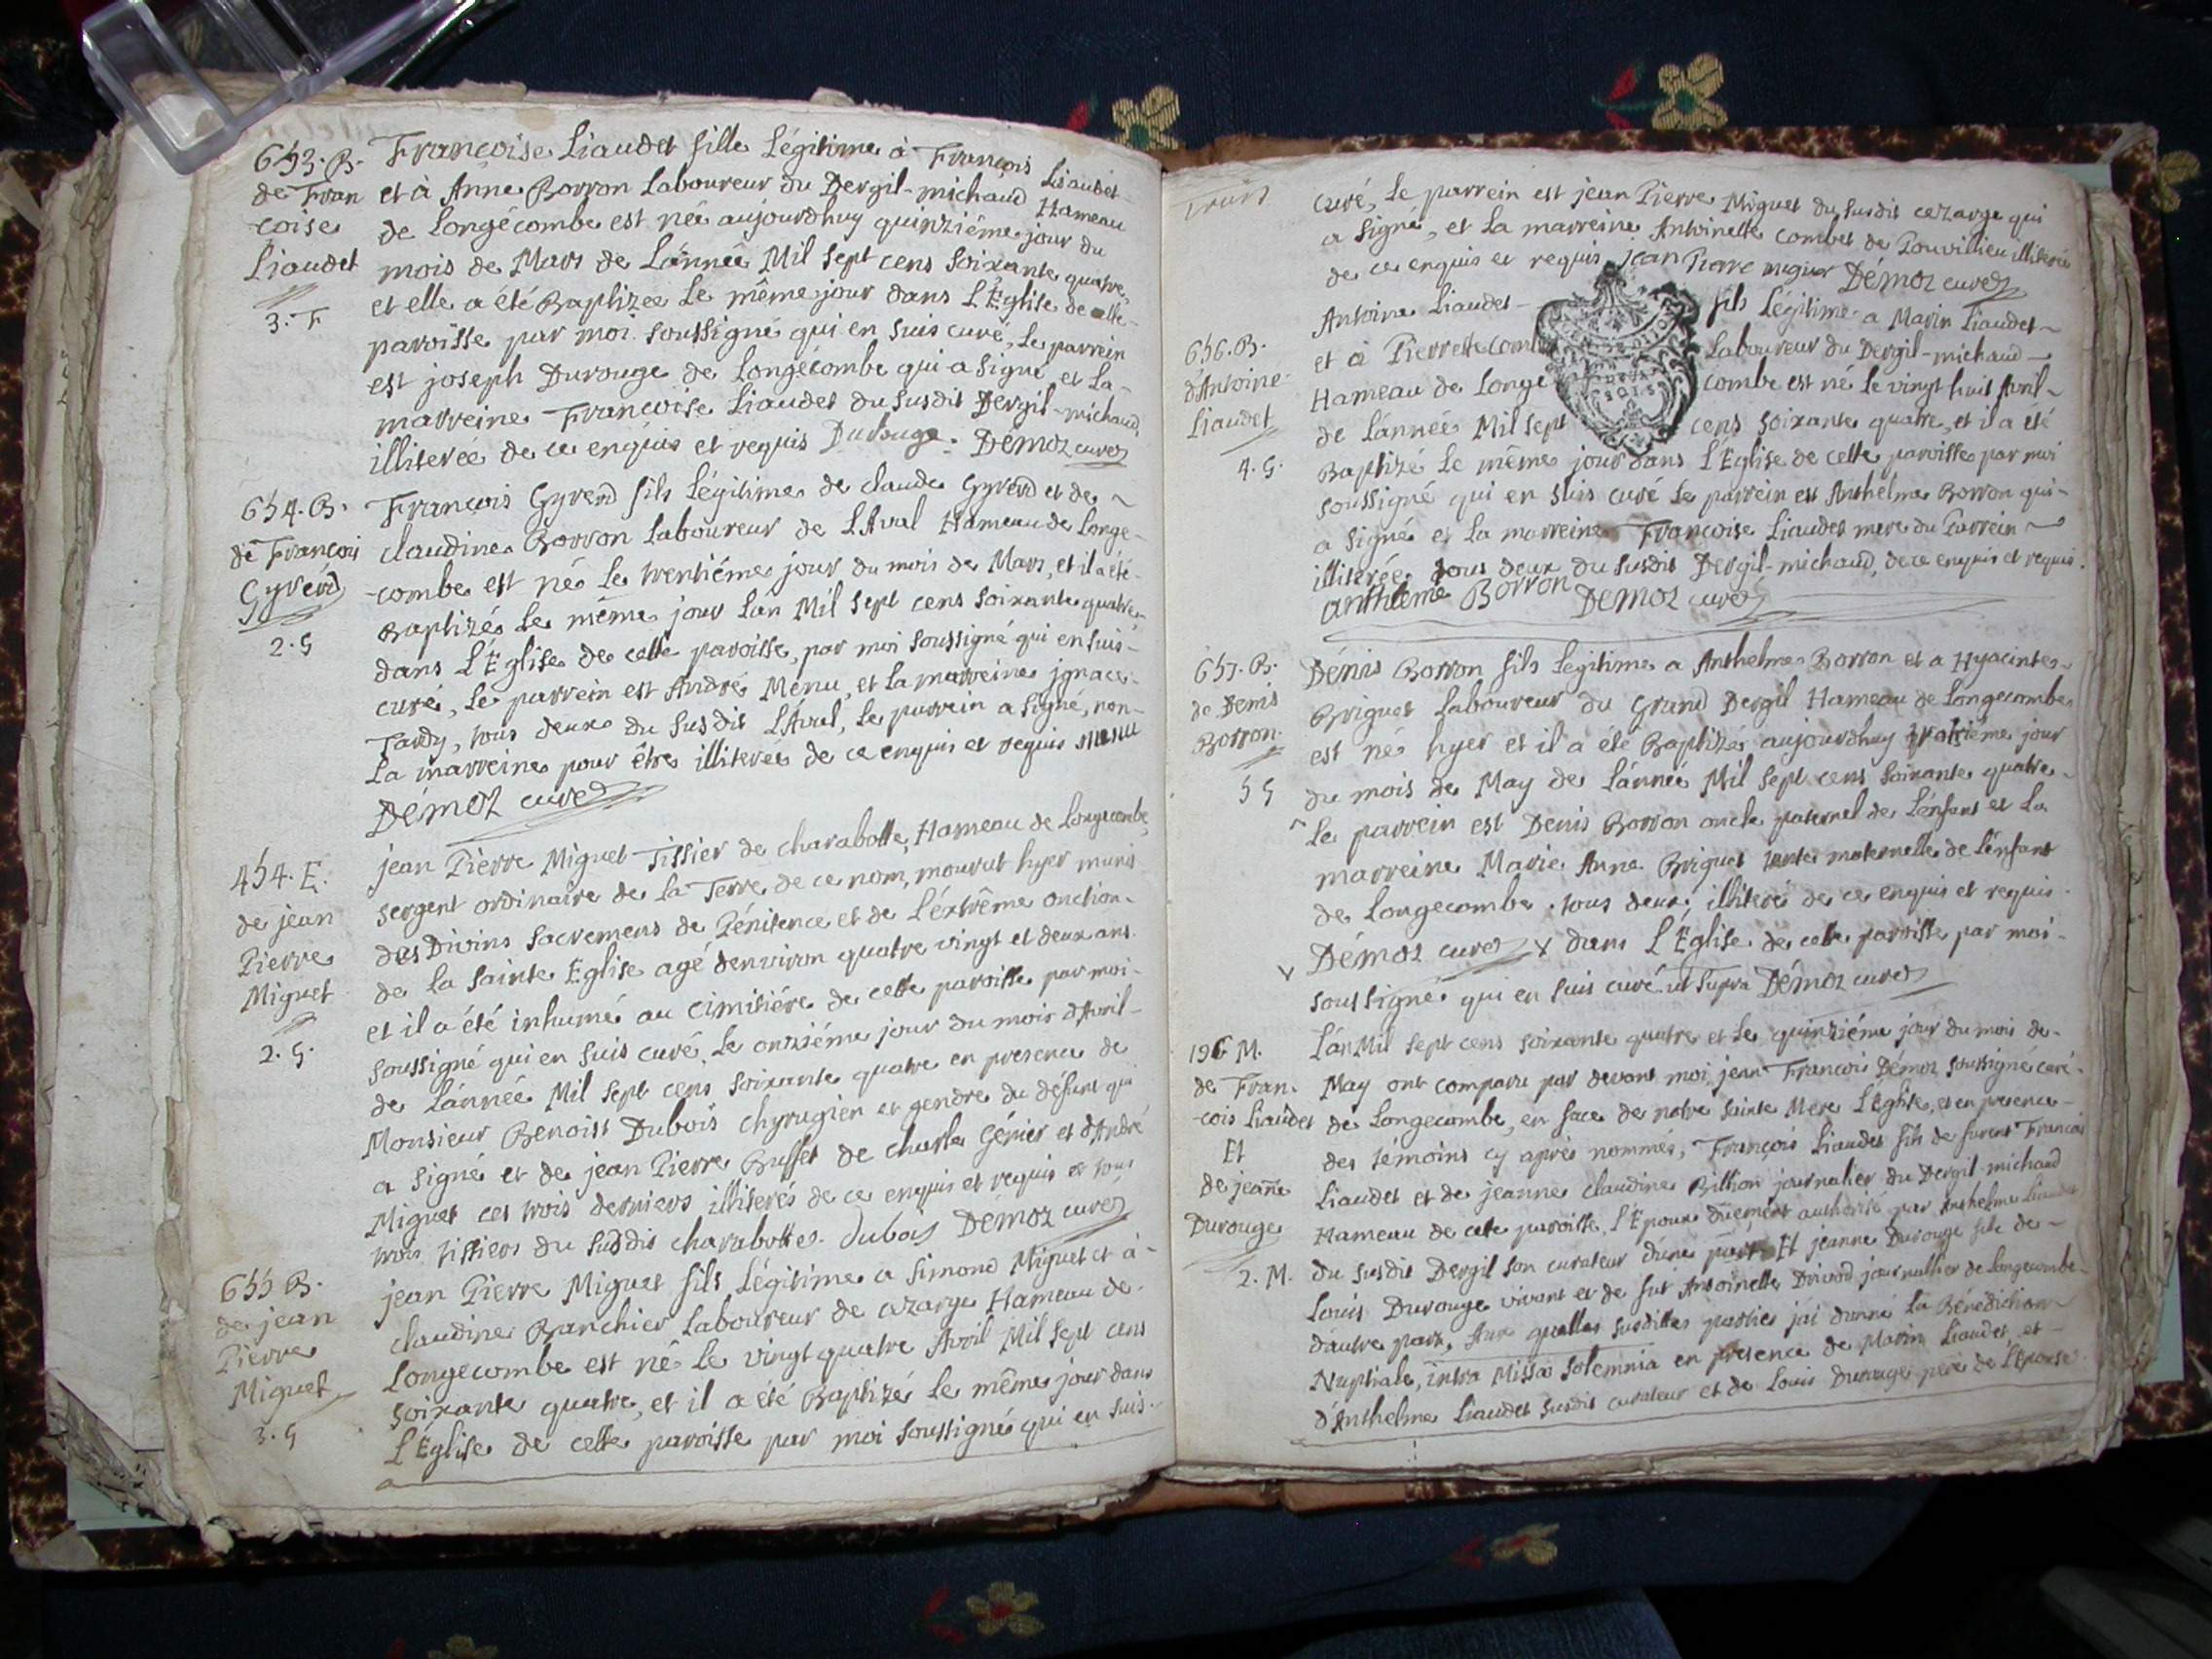 653. B.
de Fran
coise
Liaudet
3. F
Françoise Liaudet fille Légitime à François Liaudet
et à Anne Borron Laboureur du Dergil-michaud Hameau
de Longécombe est née aujourdhuy quinziéme jour du
mois de Mars de Lánnée Mil sept cens soixante quatre,
et elle a été Baptizée Le même jour dans L'Église de cette
paroisse par moi soussigné qui en suis curé, Le parrein
est joseph Durouge de Longécombe qui a signé et La
marreine Françoise Liaudet du susdit Dergil-michaud,
illiterée de ce enquis et requis Durouge. Démoz curé
654. B.
de François
Gyrérd
2. G
François Gyrerd fils Légitime de claude Gyrérd et de
claudine Borron Laboureur de L'Aval Hameau de Longe-
-combe est né Le trentiéme jour du mois de Mars, et il a été
Baptizé Le même jour Lán Mil sept cens soixante quatre,
dans L'Église de cette paroisse, par moi soussigné qui en suis
curé, Le parrein est André Ménu, et La marreine jgnace
Tardy, tous deux du susdit L'Aval, Le parrein a signé, non
La marreine pour être illiterée de ce enquis et requis menu
Démoz curé
454. E.
de jean
Pierre
Miguet
2. G.
jean Pierre Miguet Tissier de charabotte, Hameau de Longecombe,
sergent ordinaire de La Terre de ce nom, mourut hyer muni
des Divins sacremens de Pénitence et de L'éxtrême onction
de La sainte Eglise agé denviron quatre vingt et deux ans
et il a été inhumé au cimitiére de cette paroisse par moi
soussigné qui en suis curé, Le onziéme jour du mois d'Avril
de Lánnée Mil sept cens soixante quatre en presence de
Monsieur Benoist Dubois chyrugien et gendre du défunt qui
a signé et de jean Pierre Buffet de charle Génier et d'André
Miguet ces trois derniers illiterés de ce enquis et requis et tous
trois tissiers du susdit charabotte. dubois Démoz curé
655 B.
de jean
Pierre
Miguet
3. G
jean Pierre Miguet fils Légitime a Simond Miguet et à
claudine Banchier Laboureur de cezarge Hameau de
Longecombe est né Le vingt quatre Avril Mil sept cens
soixante quatre, et il a été Baptizé Le même jour dans
L'Eglise de cette paroisse par moi soussigné qui en suis
curé, Le parrein est jean Pierre Miguet du susdit cezarge qui
a signé, et La marreine Antoinette combet de Pouvillieu illiterée
de ce enquis et requis jean Pierre miguet Démoz curé
656. B.
d'Antoine
Liaudet
4. G.
Antoine Liaudet fils Légitime a Marin Liaudet
et à Pierrette comb Laboureur du Dergil-michaud
Hameau de Longe combe est né Le vingt huit Avril
de Lánnée Mil sept cens soixante quatre, et il a été
Baptizé Le même jour dans L'Église de cette paroisse par moi
soussigné qui en suis curé Le parrein est Anthelme Borron qui
a signé et La marreine Françoise Liaudet mere du Parrein
illiterée, tous deux du susdit Dergil-michaud, de ce enquis et requis.
anthleme Borron Démoz curé
657. B.
de Denis
Borron
5 G
Dénis Borron fils Légitime a Anthelme Borron et a Hyacinte
Briguet Laboureur du Grand Dergil Hameau de Longecombe
est né hyer et il a été Baptizé aujourdhuy jour
du mois de May de Lánnée Mil sept cens soixante quatre
Le parrein est Denis Borron oncle paternel de L'énfant et La
marreine Marie Anne Briguet tante maternelle de L'énfant
de Longecombe. tous deux illiteré de ce enquis et requis
Démoz curé x dans L'Église de cette paroisse par moi
soussigné qui en suis curé. ut supra Démoz curé
196 M.
de Fran.
cois Liaudet
Et
de jeanne
Durouge
2. M.
Lán Mil sept cens soixante quatre et Le quinziéme jour du mois de
May ont comparu par devant moi jean François Démoz soussigné curé
de Longecombe, en face de notre sainte Mere L'Église, et en presence
des témoins cy aprés nommés, François Liaudet fils de furent François
Liaudet et de jeanne claudine Billion journalier du Dergil michaud
Hameau de cette paroisse, L'Époux düement authorisé par Anthelme Liaudet
du susdit Dergil son curateur d'une part Et jeanne Durouge fille de
Louis Durouge vivant et de fut Antoinette journallier de Longecombe
d'autre part, Aux quelles susdittes parties j'ai donné La Bénédiction
Nuptiale, intra Missæ solemnia en presence de Marin Liaudet, et
d'Anthelme Liaudet susdit curateur et de Louis Durouge pere de L'épouse